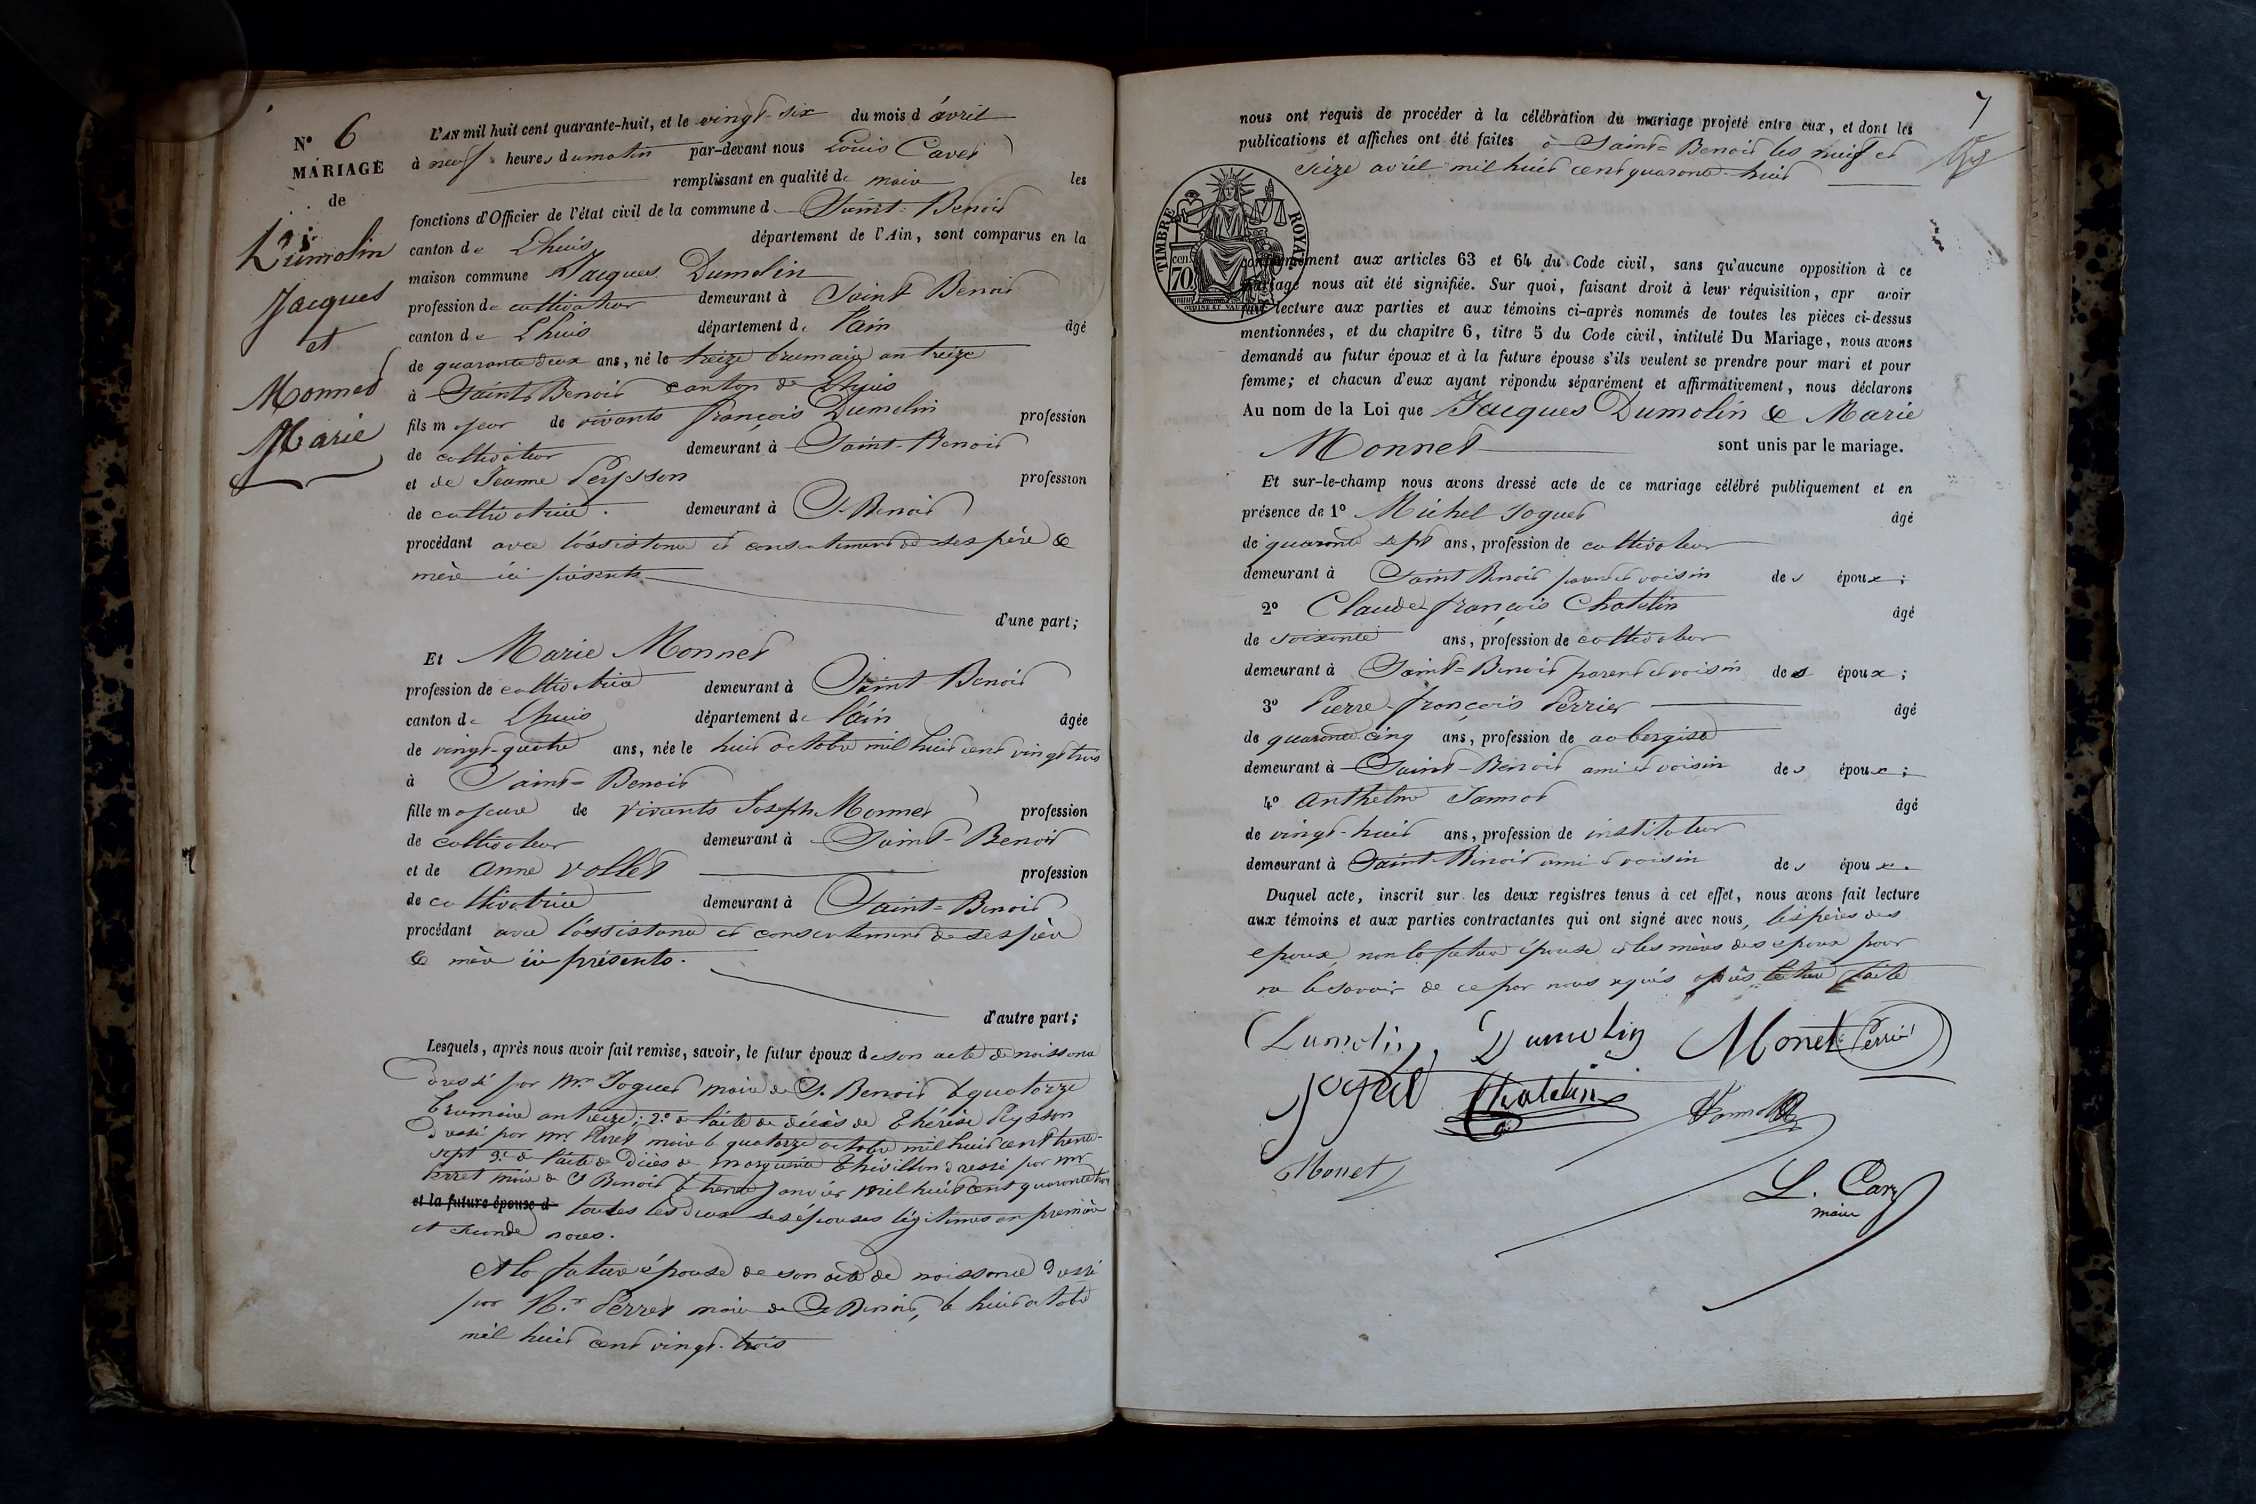 N° 6
MARIAGE
de
Dumolin
Jacques
et
Monnet
Marie
L'AN mil huit cent quarante-huit, et le vingt-six du mois d'avril
à neuf heures du matin par-devant nous Louis Cavet
remplissant en qualité de maire les
fonctions d'Officier de l'état civil de la commune d Saint-Benoit
canton de Lhuis département de l'Ain, sont comparus en la
maison commune Jacques Dumolin
profession de cultivateur demeurant à Saint Benoit
canton de Lhuis département de l'ain âgé
de quarante deux ans, né le treize brumaire an treize
à Saint Benoit canton de Lhuis
fils majeur de vivants françois Dumolin profession
de cultivateur demeurant à Saint-Benoit
et de Jeanne Peysson profession
de cultivatrice demeurant à St Benoit
procédant avec l'assistance et consentement de ses père &
mère ici présents
d'une part;
Et Marie Monnet
profession de cultivatrice demeurant à Saint Benoit
canton de Lhuis département de l'ain âgée
de vingt-quatre ans, née le huit octobre mil huit cent vingt trois
à Saint-Benoit
fille majeure de vivants Joseph Monnet profession
de cultivateur demeurant à Saint-Benoit
et de anne vollet profession
de cultivatrice demeurant à Saint-Benoit
procédant avec l'assistance et consentement de ses père
& mère ici présents.
d'autre part;
Lesquels, après nous avoir fait remise, savoir, le futur époux de son acte de naissance
dressé par Mr. Joguet maire de St. Benoit le quatorze
brumaire an treize; 2° de l'acte de décès de Thérèse Peysson
dressé par Mr maire le quatorze octobre mil huit cent trente-
sept 3° de l'acte de décès de marguerite Thévillon dressé par Mr
Perret maire de St Benoit le trente janvier mil huit cent quarante trois
et la future épouse d toutes les deux ses épouses légitimes en première
et seconde noces.
Et la future épouse de son acte de naissance dressé
par Mr. Perret maire de St Benoit, le huit octobre
mil huit cent vingt-trois
7
nous ont requis de procéder à la célébration du mariage projeté entre eux, et dont les
publications et affiches ont été faites à Saint-Benoit les neuf et
seize avril mil huit cent quarante-huit
TIMBRE ROYAL
70 cen
conformément aux articles 63 et 64 du Code civil, sans qu'aucune opposition à ce
mariage nous ait été signifiée. Sur quoi, faisant droit à leur réquisition, apr avoir
fait lecture aux parties et aux témoins ci-après nommés de toutes les pièces ci-dessus
mentionnées, et du chapitre 6, titre 5 du Code civil, intitulé Du Mariage, nous avons
demandé au futur époux et à la future épouse s'ils veulent se prendre pour mari et pour
femme; et chacun d'eux ayant répondu séparément et affirmativement, nous déclarons
Au nom de la Loi que Jacques Dumolin & Marie
Monnet sont unis par le mariage.
Et sur-le-champ nous avons dressé acte de ce mariage célébré publiquement et en
présence de 1° Michel Joguet âgé
de quarante sept ans, profession de cultivateur
demeurant à Saint Benoit parent et voisin des époux;
2° Claude françois Chatelin âgé
de soixante ans, profession de cultivateur
demeurant à Saint-Benoit parent et voisin des époux;
3° Pierre-françois Perrier âgé
de quarante cinq ans, profession de aubergiste
demeurant à Saint-Benoit ami et voisin des époux;
4° anthelme Jannot âgé
de vingt-huit ans, profession de instituteur
demeurant à Saint-Benoit ami et voisin des époux.
Duquel acte, inscrit sur les deux registres tenus à cet effet, nous avons fait lecture
aux témoins et aux parties contractantes qui ont signé avec nous, les pères des
epoux non la future épouse et les mères des époux pour
ne le savoir de ce par nous requis après lecture faite
Dumolin Dumolin Monet Perrié
Joguet Chatelin Jannot
Monet
L. Cavet
maire